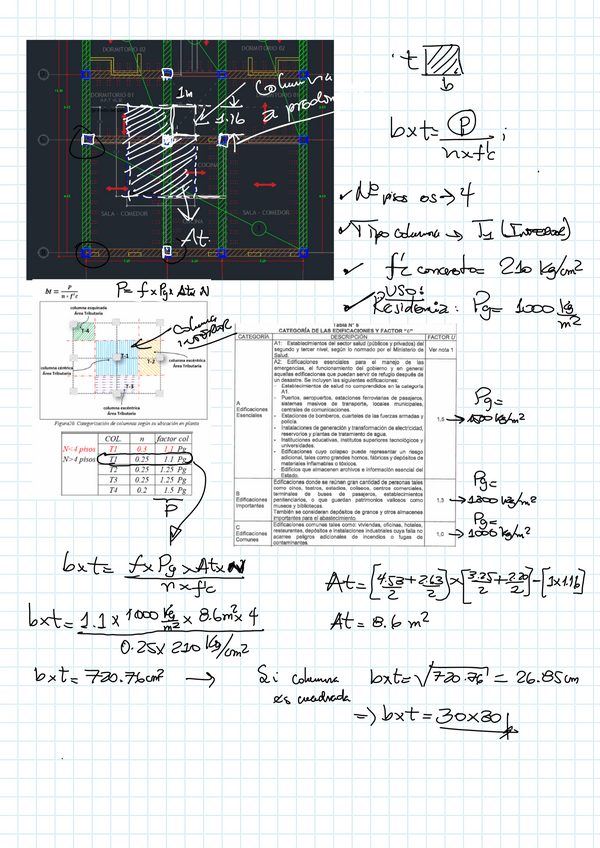 DORMITORIO 02
DORMITORIO 02
DORMITORIO 01
1m
Columna
a predim
1.16
COCINA
SALA - COMEDOR
SALA - COMEDOR
At.
t
b
bxt = P / n x f'c ;
✓ Nº pisos os → 4
✓ Tipo columna → T1 (Interior)
✓ f'c concreto = 210 kg/cm²
USO:
✓ Residencia : Pg = 1000 kg/m²
bt = P / n · f'c
P = f x Pg x At x N
columna esquinada
Área Tributaria
T-4
T-1
T-2
T-3
columna céntrica
Área Tributaria
columna excéntrica
Área Tributaria
columna excéntrica
Área Tributaria
Columna
INTERIOR
Figura20. Categorización de columnas según su ubicación en planta
COL. n factor col
N<4 pisos T1 0.3 1.1 Pg
N>4 pisos T1 0.25 1.1 Pg
T2 0.25 1.25 Pg
T3 0.25 1.25 Pg
T4 0.2 1.5 Pg
P
TABLA N° 5
CATEGORÍA DE LAS EDIFICACIONES Y FACTOR "U"
CATEGORÍA DESCRIPCIÓN FACTOR U
A
Edificaciones
Esenciales
A1: Establecimientos del sector salud (públicos y privados) del
segundo y tercer nivel, según lo normado por el Ministerio de
Salud.
Ver nota 1
A2: Edificaciones esenciales para el manejo de las
emergencias, el funcionamiento del gobierno y en general
aquellas edificaciones que puedan servir de refugio después de
un desastre. Se incluyen las siguientes edificaciones:
- Establecimientos de salud no comprendidos en la categoría
A1.
- Puertos, aeropuertos, estaciones ferroviarias de pasajeros,
sistemas masivos de transporte, locales municipales,
centrales de comunicaciones.
- Estaciones de bomberos, cuarteles de las fuerzas armadas y
policía.
- Instalaciones de generación y transformación de electricidad,
reservorios y plantas de tratamiento de agua.
- Instituciones educativas, institutos superiores tecnológicos y
universidades.
- Edificaciones cuyo colapso puede representar un riesgo
adicional, tales como grandes hornos, fábricas y depósitos de
materiales inflamables o tóxicos.
- Edificios que almacenen archivos e información esencial del
Estado.
1,5
Pg =
→ 1500 kg/m²
B
Edificaciones
Importantes
Edificaciones donde se reúnen gran cantidad de personas tales
como cines, teatros, estadios, coliseos, centros comerciales,
terminales de buses de pasajeros, establecimientos
penitenciarios, o que guardan patrimonios valiosos como
museos y bibliotecas.
También se consideran depósitos de granos y otros almacenes
importantes para el abastecimiento.
1,3
Pg =
→ 1300 kg/m²
C
Edificaciones
Comunes
Edificaciones comunes tales como: viviendas, oficinas, hoteles,
restaurantes, depósitos e instalaciones industriales cuya falla no
acarree peligros adicionales de incendios o fugas de
contaminantes.
1,0
Pg =
→ 1000 kg/m²
bxt = f x Pg x At x N / n x f'c
At = [4.53+2.63 / 2] x [3.25+2.20 / 2] - [1x1.16]
bxt = 1.1 x 1000 kg/m² x 8.6m² x 4 / 0.25 x 210 kg/cm²
At = 8.6 m²
bxt = 720.76 cm² → Si columna es cuadrada bxt = √720.76 = 26.85 cm
⇒ bxt = 30x30